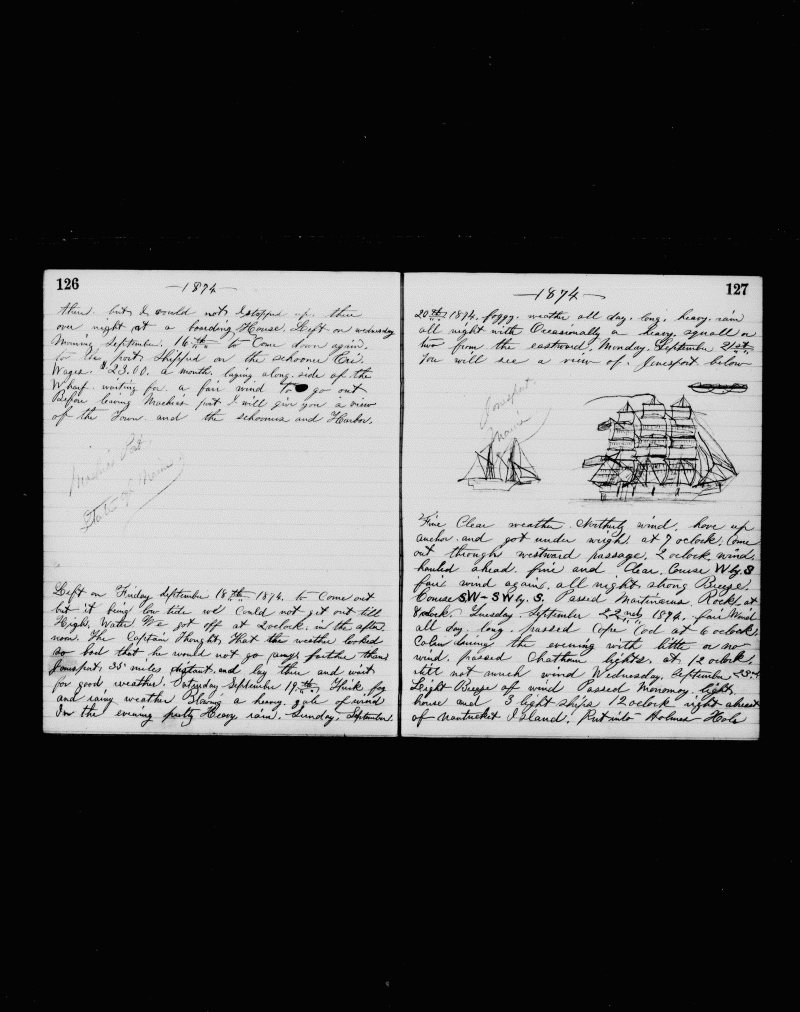 126
1874
then but I would not I stopped up there
over night at a boarding House. Left on wednesday
Morning September. 16th to Come down again.
port shipped on the schooner
Wages. $23.00. a month. laying along side of the
Wharf. waiting for a fair wind to go out
Before leaving Machis port I will give you a view
of the Town and the schooners and Harbor.
Machis Port
State of Maine
Left on Friday September 18th to Come out
but it being low tide we Could not get out till
High Water We got off at 2 oclock in the after
noon. The Captain thought, That the weather looked
so bad that he would not go any farther than
Jonesport, 35 miles distant, and lay there and wait
for good weather. Saturday September 19th, Thick fog
and rainy weather Blowing a heavy gale of wind
In the evening pretty Heavy rain. Sunday, September
127
1874
20th 1874. foggy weather all day. long. heavy. rain
all night with Occasionally a heavy squall or
two from the eastward. Monday. September 21st
You will see a view of. Jonesport below
Jonesport
Maine
Fine Clear weather. Northerly wind. hove up
anchor and got under weigh at 7 oclock. Come
out through westward passage. 2 oclock wind
hauled ahead. fine and Clear. Course W by S
fair wind again. all night strong Breeze.
Course SW - SW by. S. Passed Martinicus Rock at
8 oclock. Tuesday. September 22nd 1874. fair Wind
all day. long. passed Cape Cod at 6 oclock.
Calm during the evening with little or no
wind. passed Chatham lights. at 12 oclock.
still not much wind Wednesday. September 23rd
Leight Breeze of wind Passed Monomoy light
house and 3 light ships 12 oclock right abreast
of Nantucket Island. Put into Holmes Hole